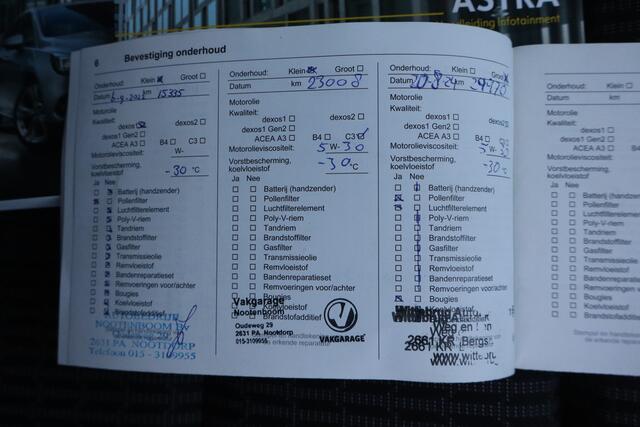 ASTRA
Handleiding Infotainment
6 Bevestiging onderhoud
Onderhoud: Klein Groot
Datum km 15335
Motorolie
Kwaliteit:
dexos1 dexos2
dexos1 Gen2
ACEA A3 B4 C3
Motorolieviscositeit:
W-
Vorstbescherming,
koelvloeistof -30 °C
Ja Nee
Batterij (handzender)
Pollenfilter
Luchtfilterelement
Poly-V-riem
Tandriem
Brandstoffilter
Gasfilter
Transmissieolie
Remvloeistof
Bandenreparatieset
Remvoeringen voor/achter
Bougies
Koelvloeistof
Brandstofadditief
NOOTENBOOM BV
2631 PA NOOTDORP
Telefoon 015 - 3109955
Onderhoud: Klein Groot
Datum km 23008
Motorolie
Kwaliteit:
dexos1 dexos2
dexos1 Gen2
ACEA A3 B4 C3
Motorolieviscositeit: 5 W-30
Vorstbescherming,
koelvloeistof -30 °C
Ja Nee
Batterij (handzender)
Pollenfilter
Luchtfilterelement
Poly-V-riem
Tandriem
Brandstoffilter
Gasfilter
Transmissieolie
Remvloeistof
Bandenreparatieset
Remvoeringen voor/achter
Bougies
Koelvloeistof
Brandstofadditief
Vakgarage
Nootenboom
Oudeweg 29
2631 PA Nootdorp
015-3109955
VAKGARAGE
Onderhoud: Klein Groot
Datum km
Motorolie
Kwaliteit:
dexos1 dexos2
dexos1 Gen2
ACEA A3 B4
Motorolieviscositeit: 5 W-
Vorstbescherming,
koelvloeistof -30 °C
Ja Nee
Batterij (handzender)
Pollenfilter
Luchtfilterelement
Poly-V-riem
Tandriem
Brandstoffilter
Gasfilter
Transmissieolie
Remvloeistof
Bandenreparatieset
Remvoeringen voor/achter
Bougies
2661 KR Bergs
Onderhoud:
Datum
Motorolie
Kwaliteit:
dexos1
dexos1 Gen2
ACEA A3
Motorolieviscositeit:
Vorstbescherming,
koelvloeistof
Ja Nee
Batterij (handz
Pollenfilter
Luchtfilterelem
Poly-V-riem
Tandriem
Brandstoffilter
Gasfilter
Transmissieolie
Remvloeistof
Bandenreparati
Remvoeringen v
Bougies
Koelvloeistof
Brandstofadditie